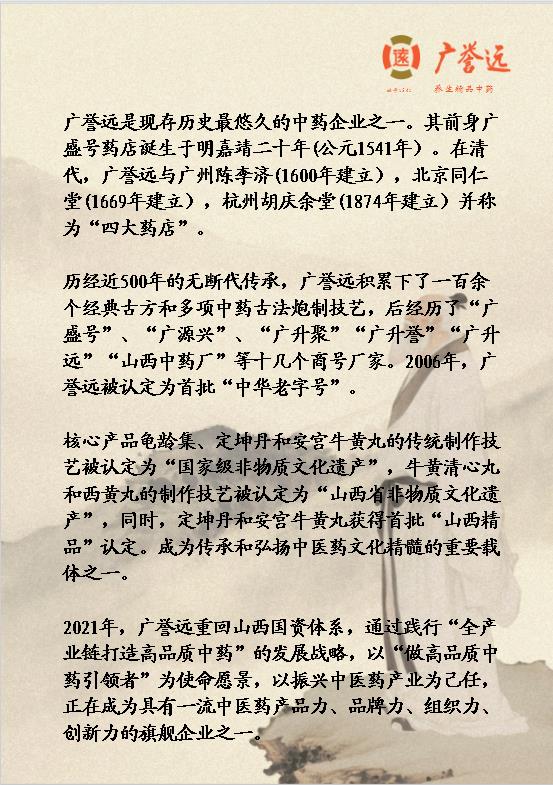 遠
广誉远
始于1541
养生精品中药
广誉远是现存历史最悠久的中药企业之一。其前身广
盛号药店诞生于明嘉靖二十年(公元1541年）。在清
代，广誉远与广州陈李济(1600年建立），北京同仁
堂(1669年建立），杭州胡庆余堂(1874年建立）并称
为“四大药店”。
历经近500年的无断代传承，广誉远积累下了一百余
个经典古方和多项中药古法炮制技艺，后经历了“广
盛号”、“广源兴”、“广升聚”“广升誉”“广升
远”“山西中药厂”等十几个商号厂家。2006年，广
誉远被认定为首批“中华老字号”。
核心产品龟龄集、定坤丹和安宫牛黄丸的传统制作技
艺被认定为“国家级非物质文化遗产”，牛黄清心丸
和西黄丸的制作技艺被认定为“山西省非物质文化遗
产”，同时，定坤丹和安宫牛黄丸获得首批“山西精
品”认定。成为传承和弘扬中医药文化精髓的重要载
体之一。
2021年，广誉远重回山西国资体系，通过践行“全产
业链打造高品质中药”的发展战略，以“做高品质中
药引领者”为使命愿景，以振兴中医药产业为己任，
正在成为具有一流中医药产品力、品牌力、组织力、
创新力的旗舰企业之一。